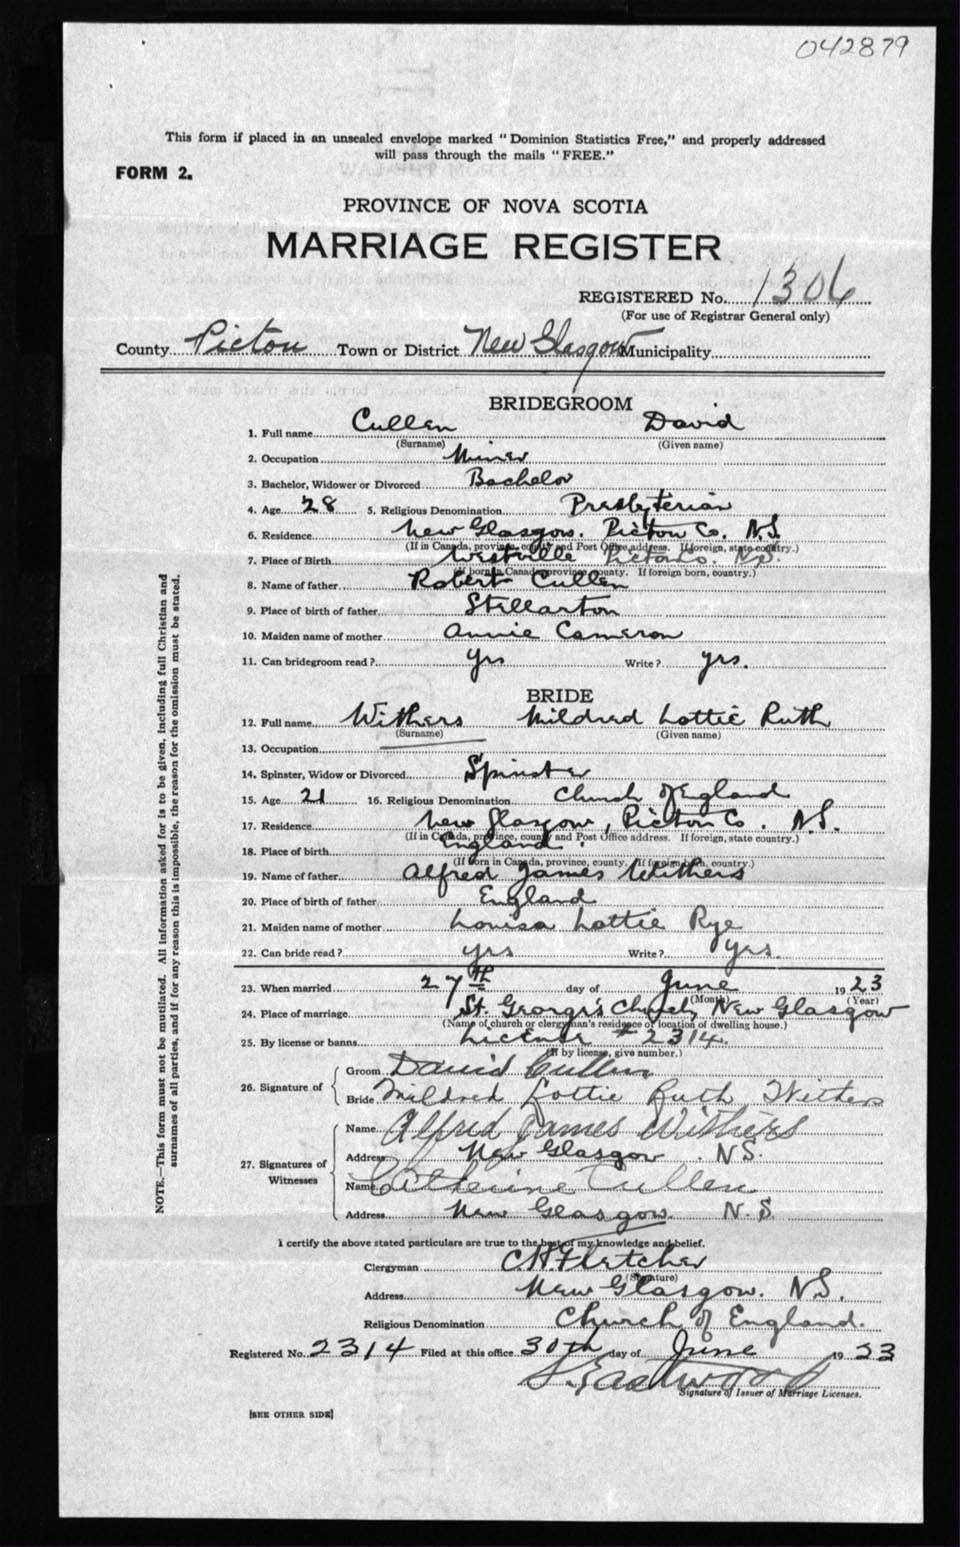 042879
This form if placed in an unsealed envelope marked "Dominion Statistics Free," and properly addressed
will pass through the mails "FREE."
FORM 2.
PROVINCE OF NOVA SCOTIA
MARRIAGE REGISTER
REGISTERED No. 1306
(For use of Registrar General only)
County Pictou Town or District New Glasgow Municipality
BRIDEGROOM
1. Full name Cullen David
(Surname) (Given name)
2. Occupation Miner
3. Bachelor, Widower or Divorced Bachelor
4. Age 28 5. Religious Denomination Presbyterian
6. Residence New Glasgow. Pictou Co. N.S.
(If in Canada, province, county and Post Office address. If foreign, state country.)
7. Place of Birth Westville Pictou Co. N.S.
(If born in Canada, province, county. If foreign born, country.)
8. Name of father Robert Cullen
9. Place of birth of father Stellarton
10. Maiden name of mother Annie Cameron
11. Can bridegroom read? yrs Write? yrs.
BRIDE
12. Full name Withers Mildred Lottie Ruth
(Surname) (Given name)
13. Occupation
14. Spinster, Widow or Divorced Spinster
15. Age 21 16. Religious Denomination Church of England
17. Residence New Glasgow, Pictou Co. N.S.
(If in Canada, province, county and Post Office address. If foreign, state country.)
18. Place of birth England.
(If born in Canada, province, county. If foreign born, country.)
19. Name of father Alfred James Withers
20. Place of birth of father England
21. Maiden name of mother Louisa Lottie Rye
22. Can bride read? yrs Write? yrs.
23. When married 27th day of June 1923
(Month) (Year)
24. Place of marriage St. George's Church, New Glasgow
(Name of church or clergyman's residence or location of dwelling house.)
25. By license or banns License # 2314.
(If by license, give number.)
26. Signature of Groom David Cullen
Bride Mildred Lottie Ruth Withers
27. Signatures of Witnesses Name Alfred James Withers
Address New Glasgow. N.S.
Name Catherine Cullen
Address New Glasgow. N.S.
I certify the above stated particulars are true to the best of my knowledge and belief.
Clergyman C.H. Fletcher
(Signature)
Address New Glasgow. N.S.
Religious Denomination Church of England.
Registered No. 2314 Filed at this office 30th day of June 1923
Eastwood
Signature of Issuer of Marriage Licenses.
[SEE OTHER SIDE]
NOTE.—This form must not be mutilated. All information asked for is to be given, including full Christian and
surnames of all parties, and if for any reason this is impossible, the reason for the omission must be stated.